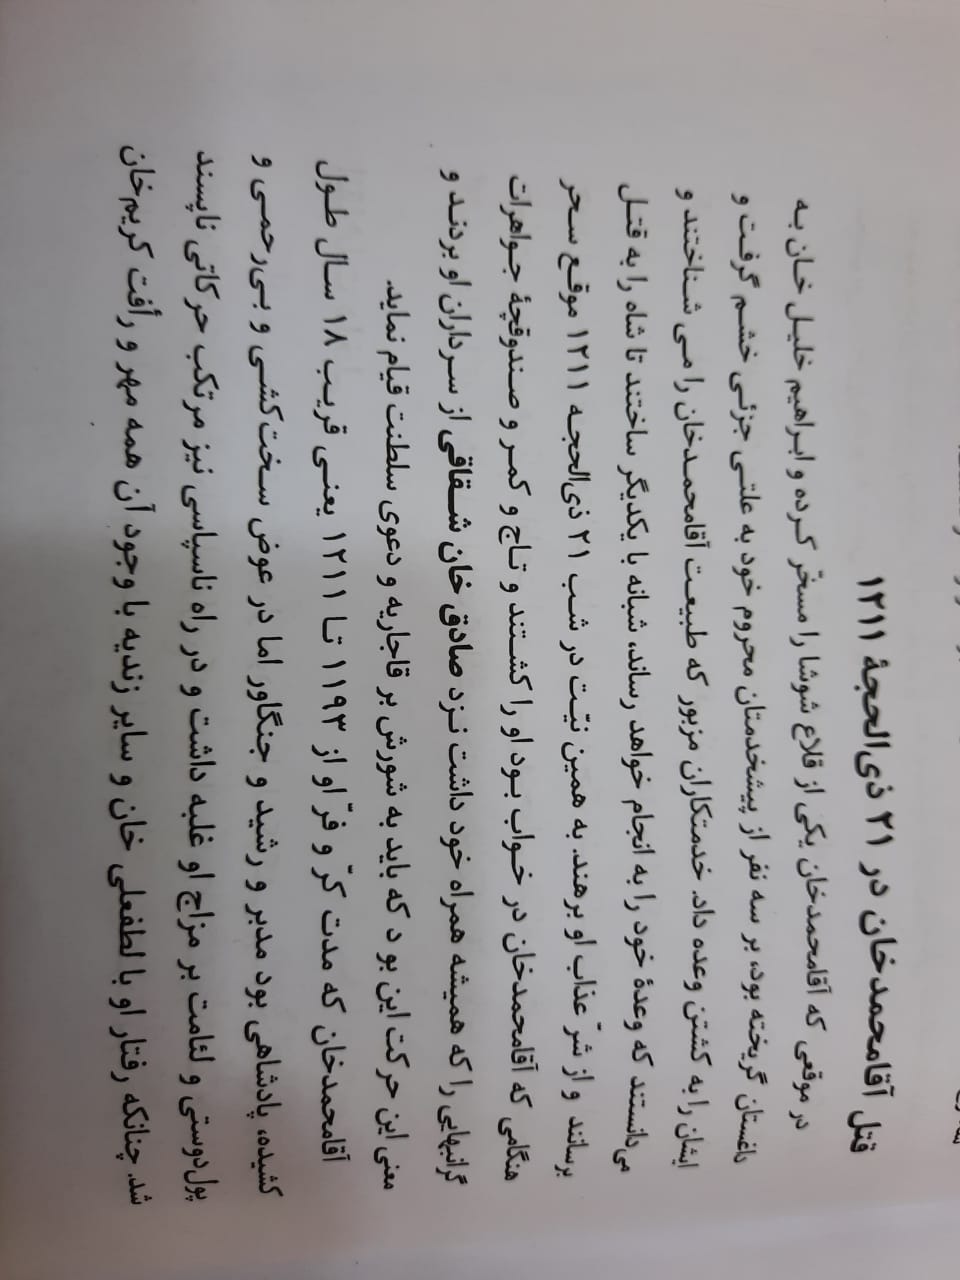 قتل آقامحمدخان در ۲۱ ذی‌الحجهٔ ۱۲۱۱
در موقعی که آقامحمدخان یکی از قلاع شوشا را مسخّر کرده و ابراهیم خلیل خان به
داغستان گریخته بود، بر سه نفر از پیشخدمتان محروم خود به علتی جزئی خشم گرفت و
ایشان را به کشتن وعده داد. خدمتکاران مزبور که طبیعت آقامحمدخان را می شناختند و
می‌دانستند که وعدهٔ خود را به انجام خواهد رساند، شبانه با یکدیگر ساختند تا شاه را به قتل
برسانند و از شرّ عذاب او برهند. به همین نیّت در شب ۲۱ ذی‌الحجه ۱۲۱۱ موقع سحر
هنگامی که آقامحمدخان در خواب بود او را کشتند و تاج و کمر و صندوقچهٔ جواهرات
گرانبهایی را که همیشه همراه خود داشت نزد صادق خان شقاقی از سرداران او بردند و
معنی این حرکت این بود که باید به شورش بر قاجاریه و دعوی سلطنت قیام نماید.
آقامحمدخان که مدت کرّ و فرّ او از ۱۱۹۳ تا ۱۲۱۱ یعنی قریب ۱۸ سال طول
کشیده، پادشاهی بود مدبر و رشید و جنگاور اما در عوض سخت‌کشی و بی‌رحمی و
پول‌دوستی و لئامت بر مزاج او غلبه داشت و در راه ناسپاسی نیز مرتکب حرکاتی ناپسند
شد. چنانکه رفتار او با لطفعلی خان و سایر زندیه با وجود آن همه مهر و رأفت کریم‌خان